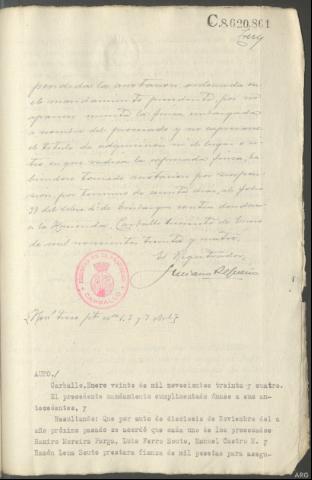 C.8.620.861
pendida la anotacion ordenada en
el mandamiento precedente por no
aparecer inscrita la finca embargada
a nombre del procesado y no expresarse
el titulo de adquisición ni el lugar o
en que radica la expresada finca, ha
biendose tomado anotacion por suspen
sion por termino de sesenta dias, al folio
del libro de embargos contra deudores
a la Hacienda. Carballo
de mil novecientos treinta y cuatro.
El Registrador,
REGISTRO DE LA PROPIEDAD
CARBALLO
AUTO./
Carballo, Enero veinte de mil novecientos treinta y cuatro.
El precedente mandamiento cumplimentado únase a sus an-
tecedentes, y
Resultando: Que por auto de dieciseis de Noviembre del a
año próximo pasado se acordó que cada uno de los procesados
Ramiro Moreira Parga, Luis Ferro Souto, Manuel Castro M. y
Ramón Lema Souto prestara fianza de mil pesetas para asegu-
ARG